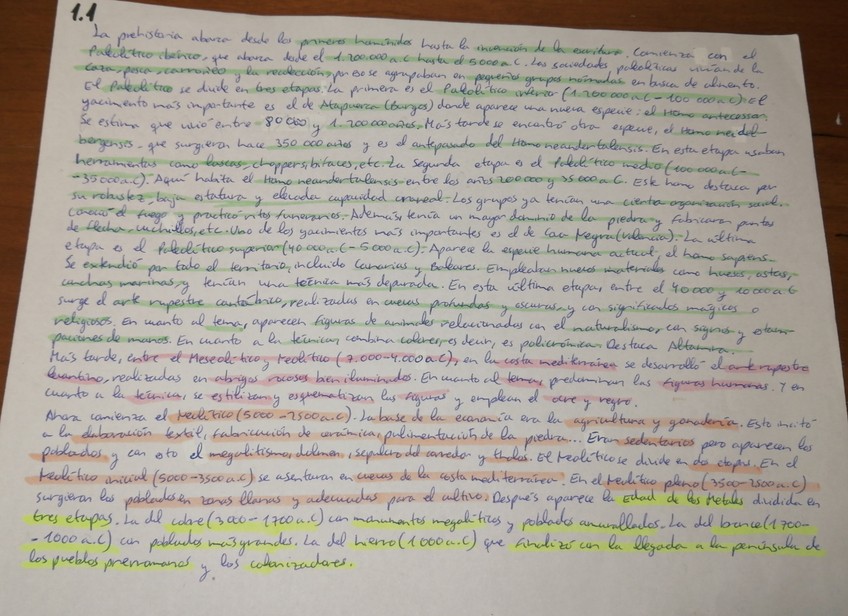 1.1
La prehistoria abarca desde los primeros homínidos hasta la invención de la escritura. Comienza con el
Paleolítico ibérico, que abarca desde el 1.200.000 a.C hasta el 5000 a.C. Las sociedades paleolíticas vivían de la
caza, pesca, carroñeo y la recolección, por eso se agrupaban en pequeños grupos nómadas en busca de alimento.
El Paleolítico se divide en tres etapas. La primera es el Paleolítico inferior (1.200.000 a.C - 100 000 a.C). El
yacimiento más importante es el de Atapuerca (Burgos) donde aparece una nueva especie: el Homo antecessor.
Se estima que vivió entre 80 000 y 1.200 000 años. Más tarde se encontró otra especie, el Homo heidel-
bergensis, que surgieron hace 350 000 años y es el antepasado del Homo neandertalensis. En esta etapa usaban
herramientas como lascas, choppers, bifaces, etc. La segunda etapa es el Paleolítico medio (100 000 a.C -
-35000 a.C). Aquí habita el Homo neandertalensis entre los años 200 000 y 35 000 a.C. Este homo destaca por
su robustez, baja estatura y elevada capacidad craneal. Los grupos ya tenían una cierta organización social.
Conoció el fuego y practicó ritos funerarios. Además, tenía un mayor dominio de la piedra y fabricaron puntas
de flecha, cuchillos, etc. Uno de los yacimientos más importantes es el de Cova Negra (Valencia). La última
etapa es el Paleolítico superior (40 000 a.C - 5 000 a.C). Aparece la especie humana actual, el homo sapiens.
Se extendió por todo el territorio, incluido Canarias y Baleares. Empleaban nuevos materiales como huesos, astas,
conchas marinas, y tenían una técnica más depurada. En esta última etapa, entre el 40 000 y 10 000 a.C
surge el arte rupestre cantábrico, realizadas en cuevas profundas y oscuras, y con significados mágicos o
religiosos. En cuanto al tema, aparecen figuras de animales relacionados con el naturalismo, con signos y estam-
paciones de manos. En cuanto a la técnica, combina colores, es decir, es policrómica. Destaca Altamira.
Más tarde, entre el Mesolítico y Neolítico (7.000 - 4.000 a.C), en la costa mediterránea se desarrolló el arte rupestre
levantino, realizadas en abrigos rocosos bien iluminados. En cuanto al tema, predominan las figuras humanas. Y en
cuanto a la técnica, se estilizan y esquematizan las figuras y emplean el ocre y negro.
Ahora comienza el Neolítico (5000 - 2500 a.C). La base de la economía era la agricultura y ganadería. Esto incitó
a la elaboración textil, fabricación de cerámica, pulimentación de la piedra... Eran sedentarios pero aparecen los
poblados y con esto el megalitismo, dolmen, sepulcro del corredor y tholos. El Neolítico se divide en dos etapas. En el
Neolítico inicial (5000 - 3500 a.C) se asentaron en cuevas de la costa mediterránea. En el Neolítico pleno (3500 - 2500 a.C)
surgieron los poblados en zonas llanas y adecuadas para el cultivo. Después aparece la Edad de los Metales dividida en
tres etapas. La del cobre (3000 - 1700 a.C) con monumentos megalíticos y poblados amurallados. La del bronce (1700-
-1000 a.C) con poblados más grandes. La del hierro (1000 a.C) que finalizó con la llegada a la península de
los pueblos prerromanos y los colonizadores.